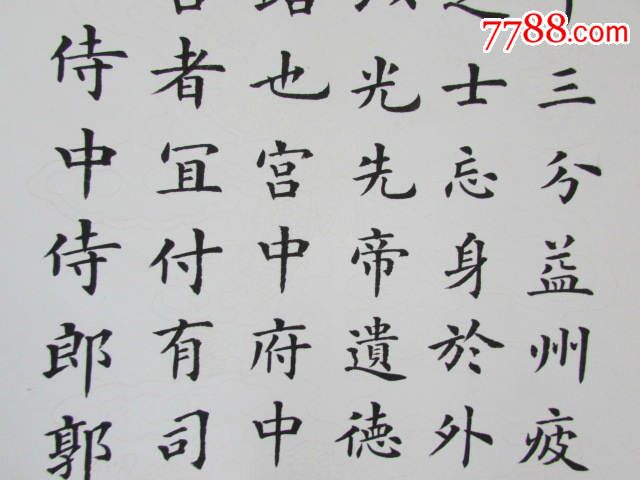 三分益州疲
之士忘身於外
光先帝遺德
路也宮中府中
者冝付有司
侍中侍郎郭
7788.com